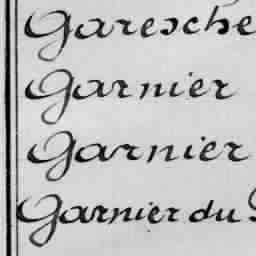 Garesche
Garnier
Garnier
Garnier du